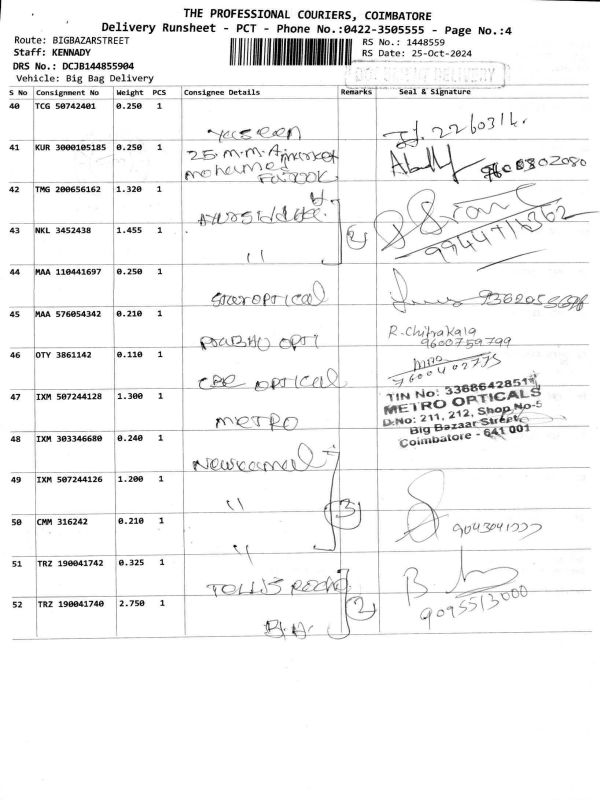 THE PROFESSIONAL COURIERS, COIMBATORE
Delivery Runsheet - PCT - Phone No.:0422-3505555 - Page No.:4
Route: BIGBAZARSTREET
RS No.: 1448559
Staff: KENNADY
RS Date: 25-Oct-2024
DRS No.: DCJB144855904
Vehicle: Big Bag Delivery
DOCUMENT DELIVERY
S No Consignment No Weight PCS Consignee Details Remarks Seal & Signature
40 TCG 50742401 0.250 1
yaseen 2260314.
41 KUR 3000105185 0.250 1 25. M.M.A market
mohamed Farook 9600802080
42 TMG 200656162 1.320 1
43 NKL 3452438 1.455 1 2
" 9944716362
44 MAA 110441697 0.250 1
Star OPTICAL
45 MAA 576054342 0.210 1 R. Chitrakala
PRABHU OPTI 9600759799
46 OTY 3861142 0.110 1
CBE OPTICAL 7600402775
47 IXM 507244128 1.300 1 TIN No: 33686428511
METRO METRO OPTICALS
D.No: 211, 212, Shop No-5
Big Bazaar Street,
Coimbatore - 641 001
48 IXM 303346680 0.240 1
New kamal
49 IXM 507244126 1.200 1
" 3
50 CMM 316242 0.210 1
" 9043041777
51 TRZ 190041742 0.325 1
52 TRZ 190041740 2.750 1 2 9095513000